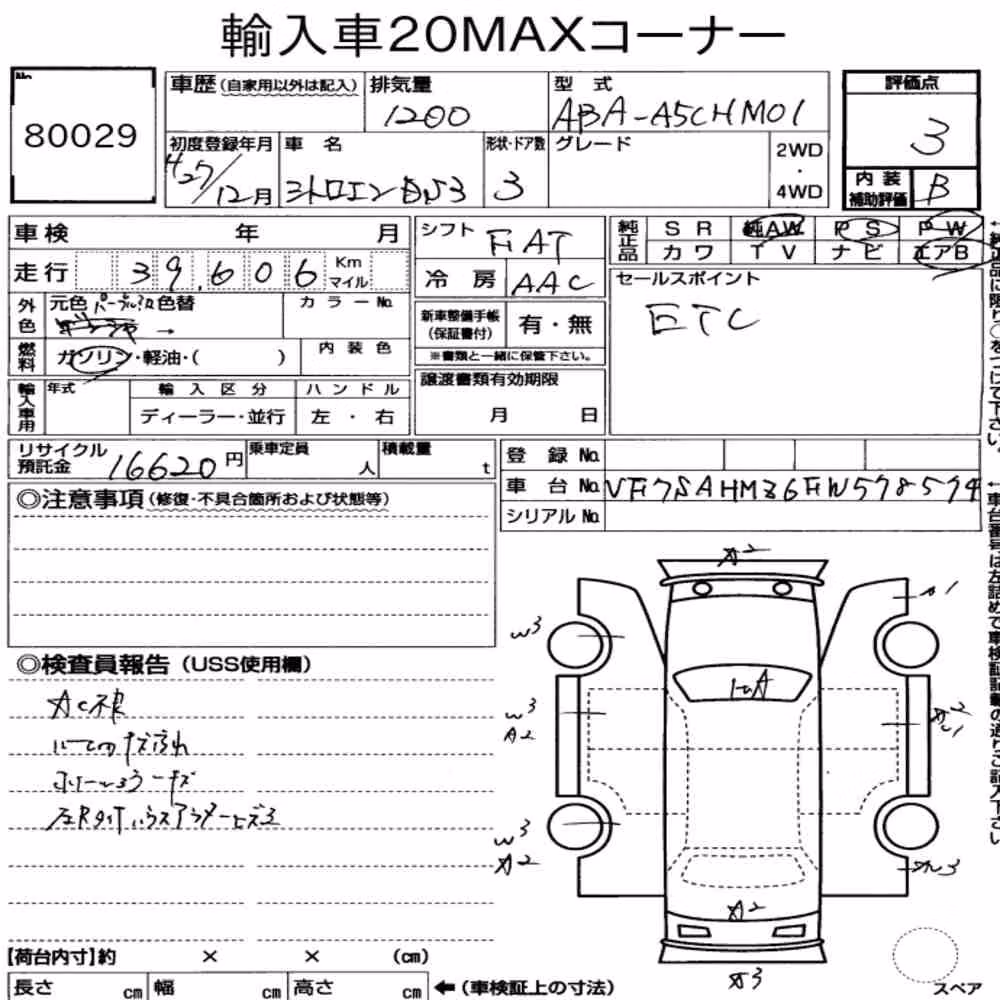 輸入車20MAXコーナー
No.
80029
車歴(自家用以外は記入) 排気量 1200 型式 ABA-A5CHM01
評価点 3
初度登録年月 H27/12月 車名 シトロエンDS3 形状・ドア数 3 グレード 2WD・4WD
内装補助評価 B
車検 年 月
走行 39,606 Km マイル
外色 元色 パープル 色替 → カラーNo.
燃料 ガソリン・軽油・( ) 内装色
輸入車用 年式 輸入区分 ハンドル
ディーラー・並行 左・右
シフト FAT
冷房 AAC
新車整備手帳(保証書付) 有・無
※書類と一緒に保管下さい。
譲渡書類有効期限
月 日
純正品 SR 純AW PS PW
カワ TV ナビ エアB
セールスポイント
ETC
←純正品に限り○をつけて下さい。
リサイクル預託金 16620円 乗車定員 人 積載量 t
登録No.
車台No. VF7SAHMZ6FW578574
シリアルNo.
←車台番号は左詰めで車検証記載の通りご記入下さい
◎注意事項(修復・不具合箇所および状態等)
◎検査員報告(USS使用欄)
AC不良
ルームのキズ汚れ
ホイールキズ
A2
A1
W3
W3
A2
W3
A2
A2
A2
A3
【荷台内寸】約 × × (cm)
長さ cm 幅 cm 高さ cm ←(車検証上の寸法)
スペア